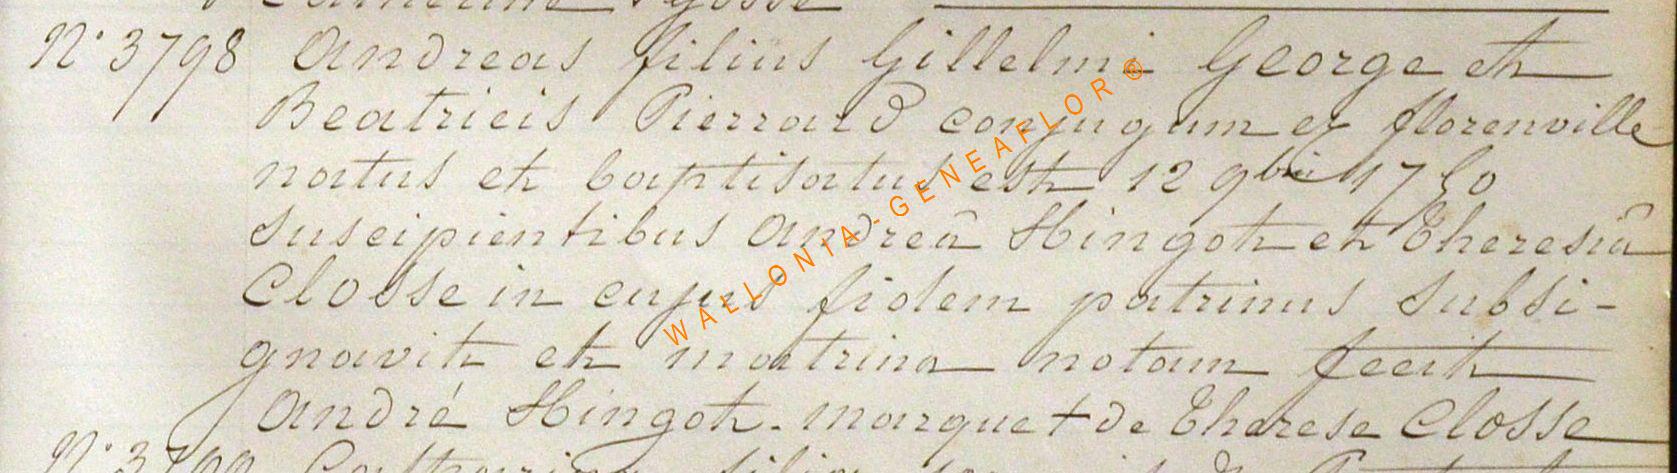 N° 3798 Andreas filius Gillelmi George et
Beatricis Pierrard conjugum ex florenville
natus et baptisatus est 12 9bris 1750
suscipientibus Andreâ Hingot et Theresiâ
Closse in cujus fidem patrinus subsi-
gnavit et matrina notam fecit
André Hingot. marque + de Therese Closse
N° 3799 Catharina filia
WALLONIA-GENEAFLOR®